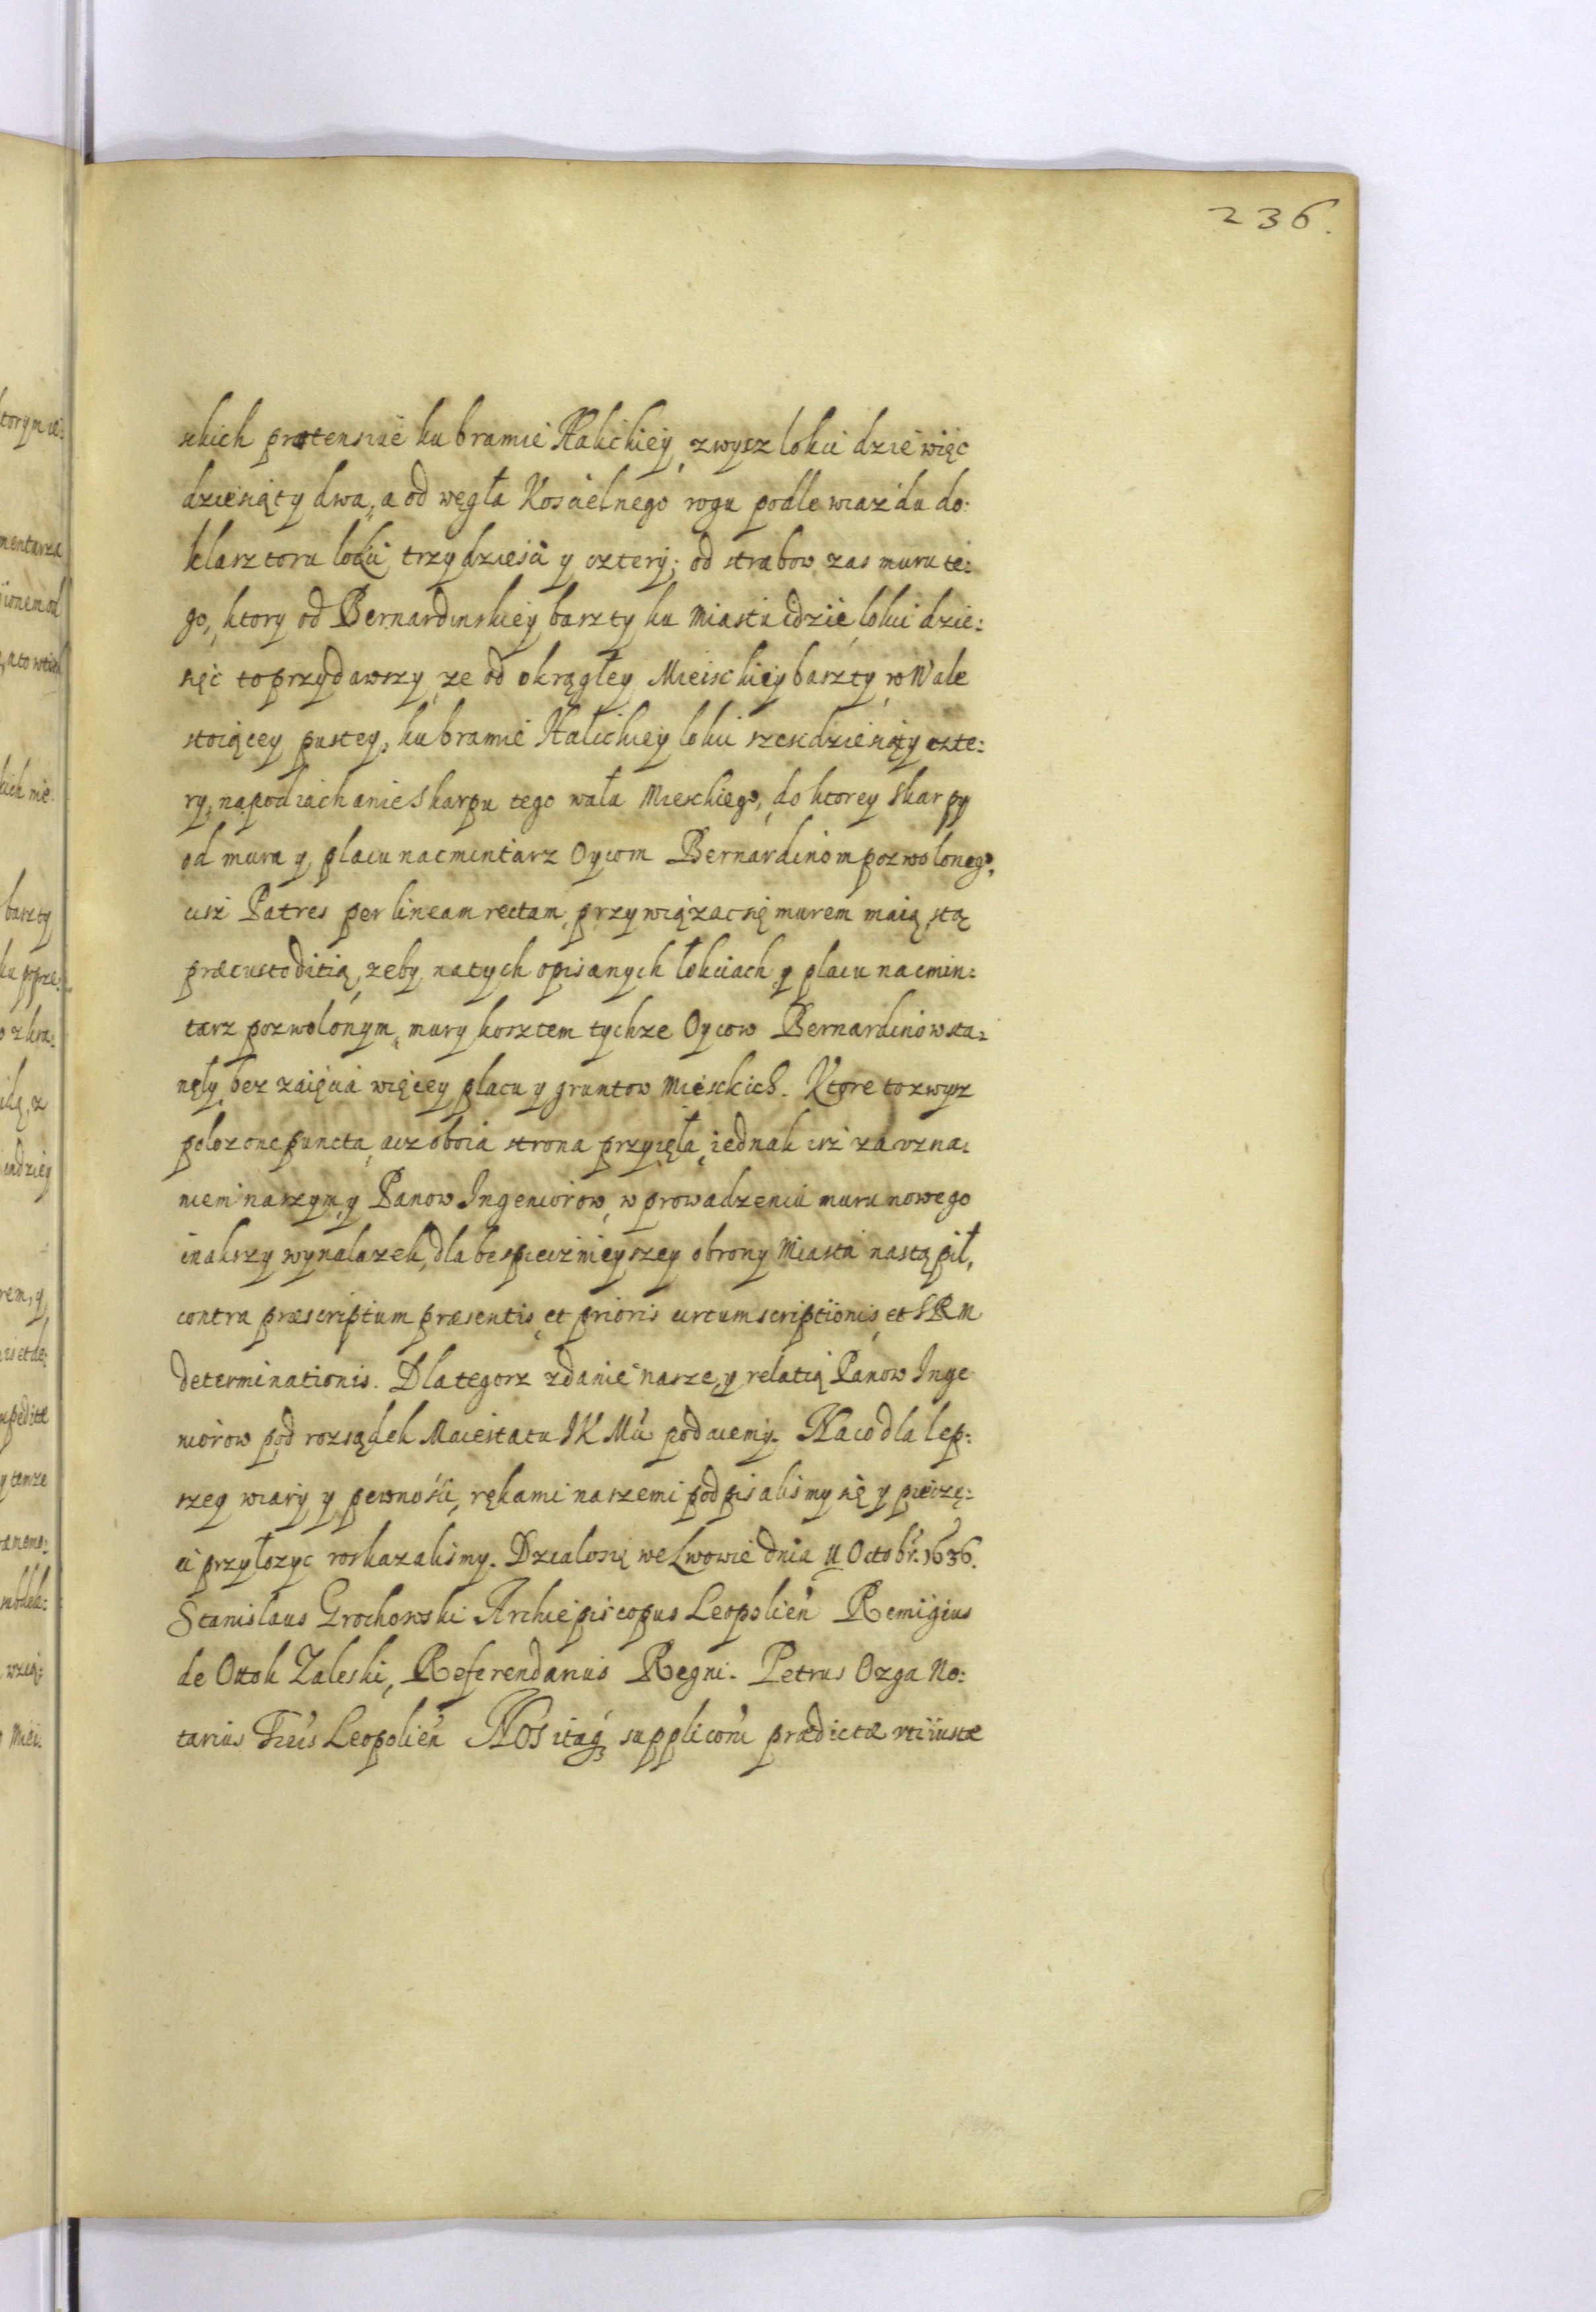 236.
skich protensiue ku bramie Halickiey, zwysz lokci dziewięc
dziesiąty dwa, a od węgła Koscielnego rogu podle wiazdu do:
klasztoru lokci trzydziesci y cztery; od strabow zas muru te:
go, ktory od Bernardinskiey baszty ku Miastu idzie, lokci dzie:
sięc to przydawszy, ze od okrągłey Mieiskiey baszty, w Wale
stoiącey pustey, ku bramie Halickiey lokci szescdziesiąty czte:
ry, na pociachanie Skarpu tego wała Mieskiego, do ktorey Skarpy
od muru y placu na cmintarz Oycom Bernardinom pozwolonego,
cisz Patres per lineam rectam, przywiązac się murem maią, stą
præcustoditią, zeby na tych opisanych łokciach y placu na cmin:
tarz pozwolonym, mury kosztem tychze Oycow Bernardinow sta:
nęły, bez zaięcia więcey placu y gruntow Mieskich. Ktore to zwysz
polozone puncta, acz oboia strona przyięła, iednak isz za vzna:
niem naszym, y Panow Ingeniorow, w prowadzeniu muru nowego
inakszy wynalazek, dla bespiecznieyszey obrony Miasta nastąpił,
contra præscriptum præsentis, et prioris circumscriptionis, et SRM
determinationis. Dlategosz zdanie nasze, y relatią Panow Inge
niorow pod rozsądek Maiestatu IKMci podaiemy. Na co dla lep:
szey wiary y pewności, rękami naszemi podpisalismy się y pieczę:
ci przyłozyc roskazalismy. Dzialo się we Lwowie dnia 11 Octobr. 1636.
Stanislaus Grochowski Archiepiscopus Leopolien Remigius
de Otok Zaleski, Referendarius Regni. Petrus Ozga No:
tarius Tris Leopolien NOS itaq supplicõni prædictæ vti iustæ